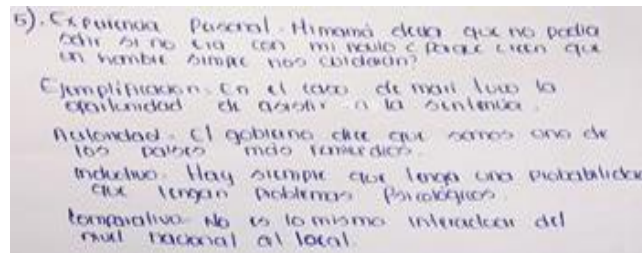 5). Experiencia Personal. Mi mamá decia que no podia
salir si no era con mi novio ¿ Porque creen que
un hombre simpre nos cuidarán?
Ejemplificacion. En el caso de mari tuvo la
oportunidad de asistir a la sentencia.
Autoridad. El gobierno dice que somos uno de
los paises más
Inductivo. Hay siempre que tenga una probabilidad
que tengan problemas Psicológicos.
Comparativo. No es lo mismo interactuar del
nivel nacional al local.